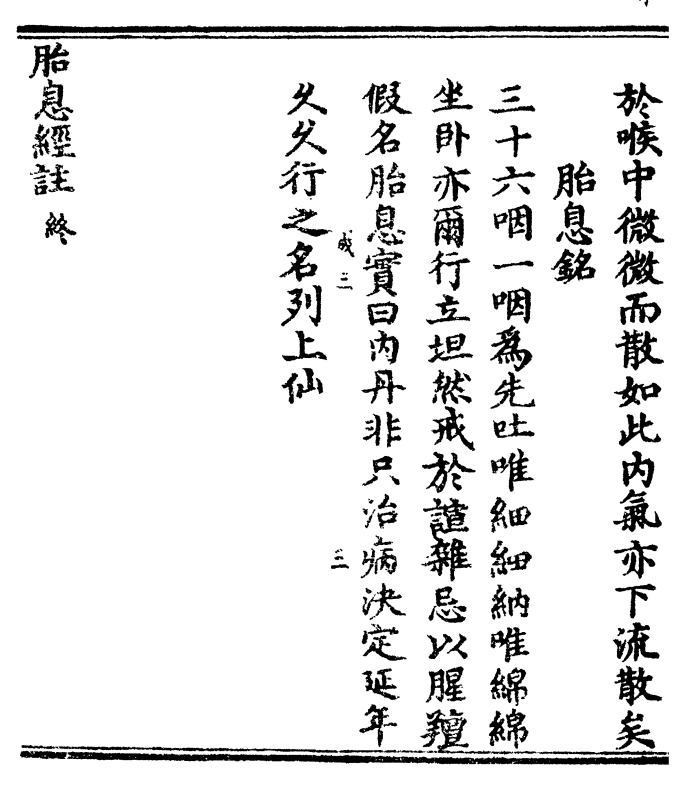 於喉中微微而散如此內氣亦下流散矣
胎息銘
三十六咽一咽爲先吐唯細細納唯綿綿
坐卧亦爾行立坦然戒於諠雜忌以腥羶
假名胎息實曰內丹非只治病決定延年
三
久久行之名列上仙
胎息經註 終